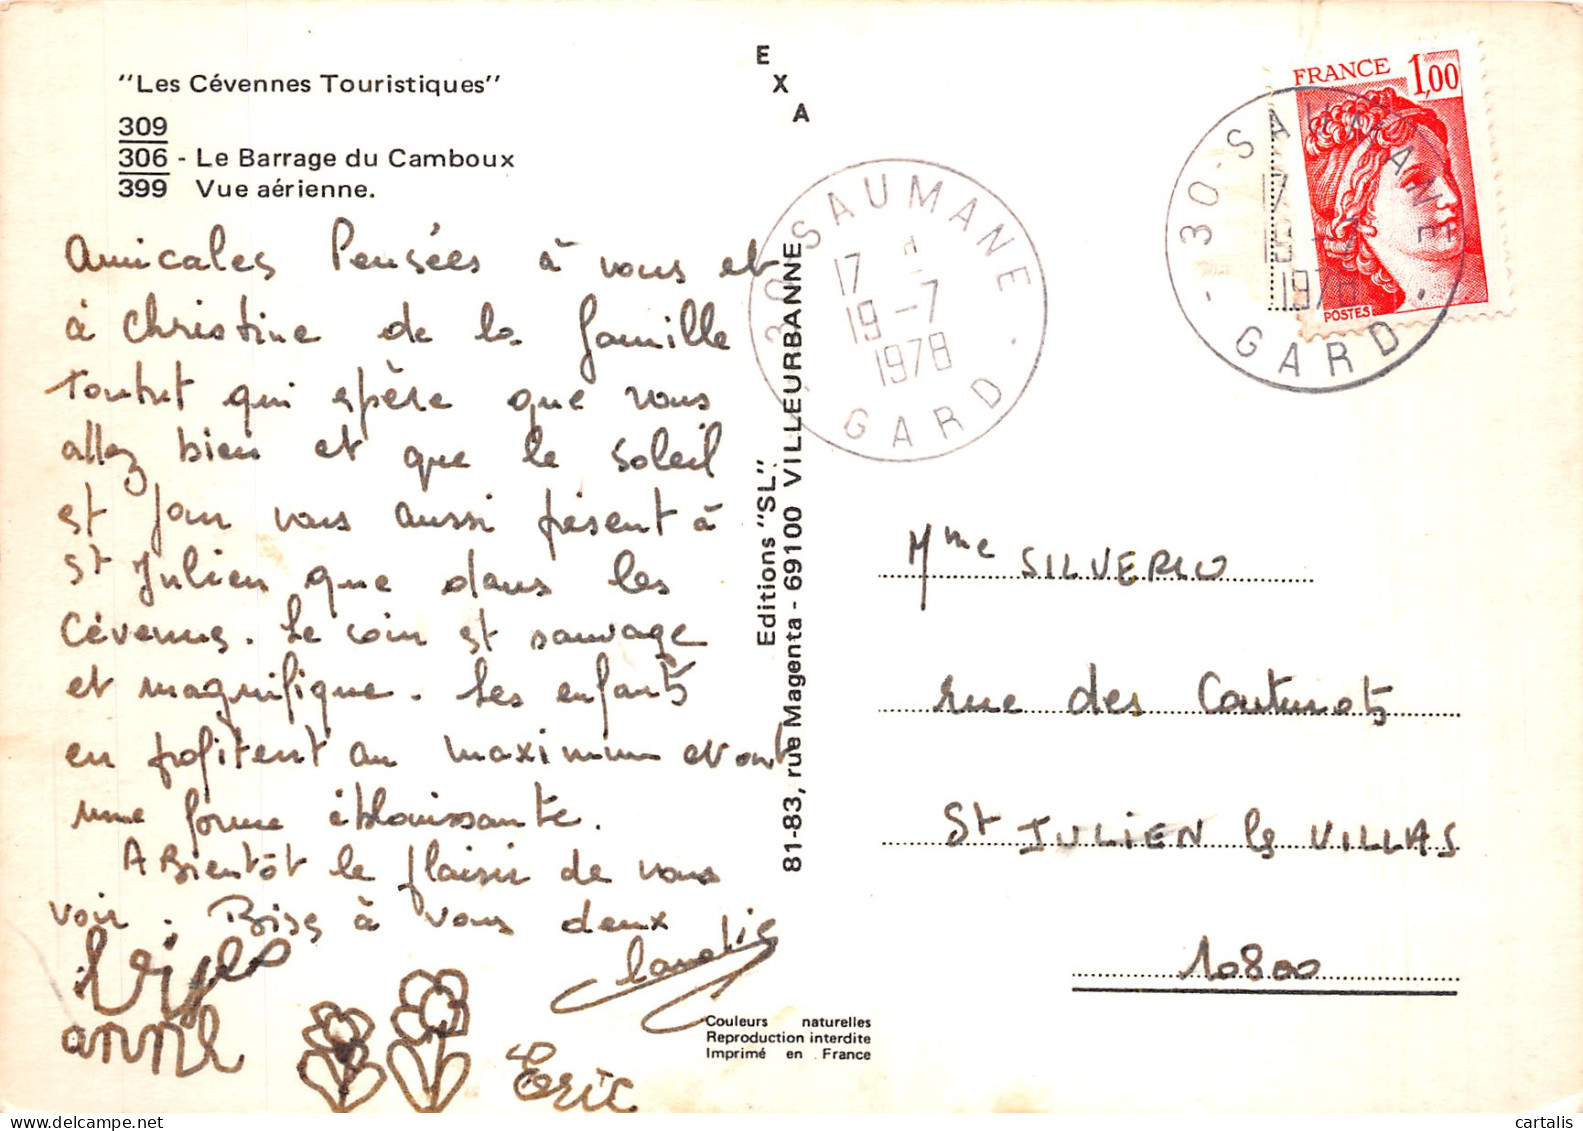 "Les Cévennes Touristiques"
309
306 - Le Barrage du Camboux
399 Vue aérienne.
Amicales Pensées à vous et
à Christine de la famille
qui espère que vous
allez bien et que le soleil
est pour vous aussi présent à
St Julien que dans les
Cévennes. Le coin est sauvage
et magnifique. Les enfants
en profitent au maximum et ont
une forme éblouissante.
A Bientôt le plaisir de vous
voir. Bises à vous deux
anne
Eric
E
X
A
Editions "SL"
81-83, rue Magenta - 69100 VILLEURBANNE
Couleurs naturelles
Reproduction interdite
Imprimé en France
30 SAUMANE
17 H
19-7
1978
GARD
FRANCE 1,00
POSTES
- 30 - SAUMANE
17
19-7
1978
GARD
Mme SILVERIO
rue des
St JULIEN les VILLAS
10800
cartalis